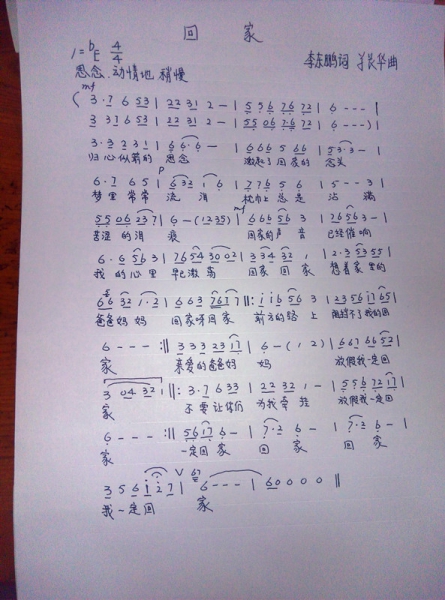 回 家
1=bE 4/4
李东鹏词 羊长华曲
思念、动情地 稍慢
mf
( 3·7 6 53 | 22 31 2 – | 5 36 76 72 | 6 - - - |
3 37 6 53 | 22 31 2 – | 55 06 76 72 | 6 - - - ) |
3·3 23 1 | 6 6·6 – | 666 5 66 | 53·3 – |
归心似箭的 思念 激起了 回家的 念头
p
6·7 6 5 | 6 32 1 6 | 776 5 6 | 5 – – –
梦里 常常 流 泪 枕巾上 总是 沾 满
55 06 23 7 | 6 – (1235) | 666 56 3 | 7656 3 – |
苦涩 的泪 痕 回家的声 音 已经催响
6·6 56 3 | 7654 3002 | 334 32 1 | 2·3 5355 |
我 的心里 早已激荡 回家 回家 想着家里的
66 32 1·2 | 6 63 7617 ‖: i i6 56 3 | 235 6i 765 |
爸爸妈妈 回家呀回家 前方的路 上
6 – – – :‖ 3 3 3 23 17 | 6 – (1 2) | 667 66 52 |
家 亲爱的爸爸妈 妈 放假我一定回
3 04 32 1 ‖: 3·7 6 33 | 22 32 1 – | 556 72 17 |
家 不要让你们 为我牵挂 放假我一定回
6 – – – :‖ 56 17 6 – | 7·2 6 – | 7·2 6 – |
家 一定回 家 回 家 回 家
3 5 6 i 2 7 | 6 – – – | 6 0 0 0 0 ‖
我一定回 家